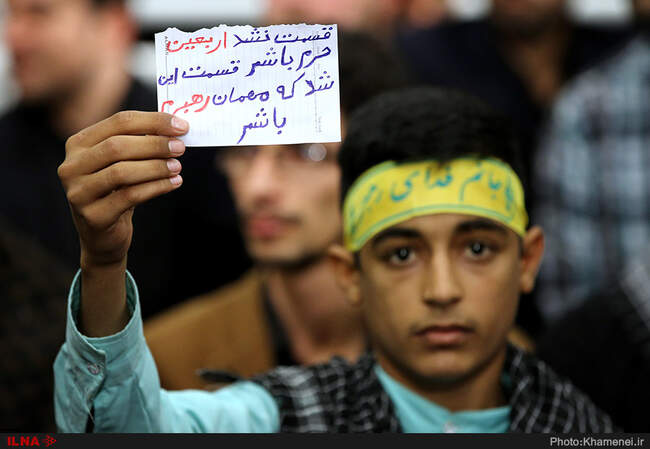 قسمت نشد اربعین
حرم باشم قسمت این
شد که مهمان رهبرم
باشم
جانم فدای رهبر
ILNA
Photo:Khamenei.ir